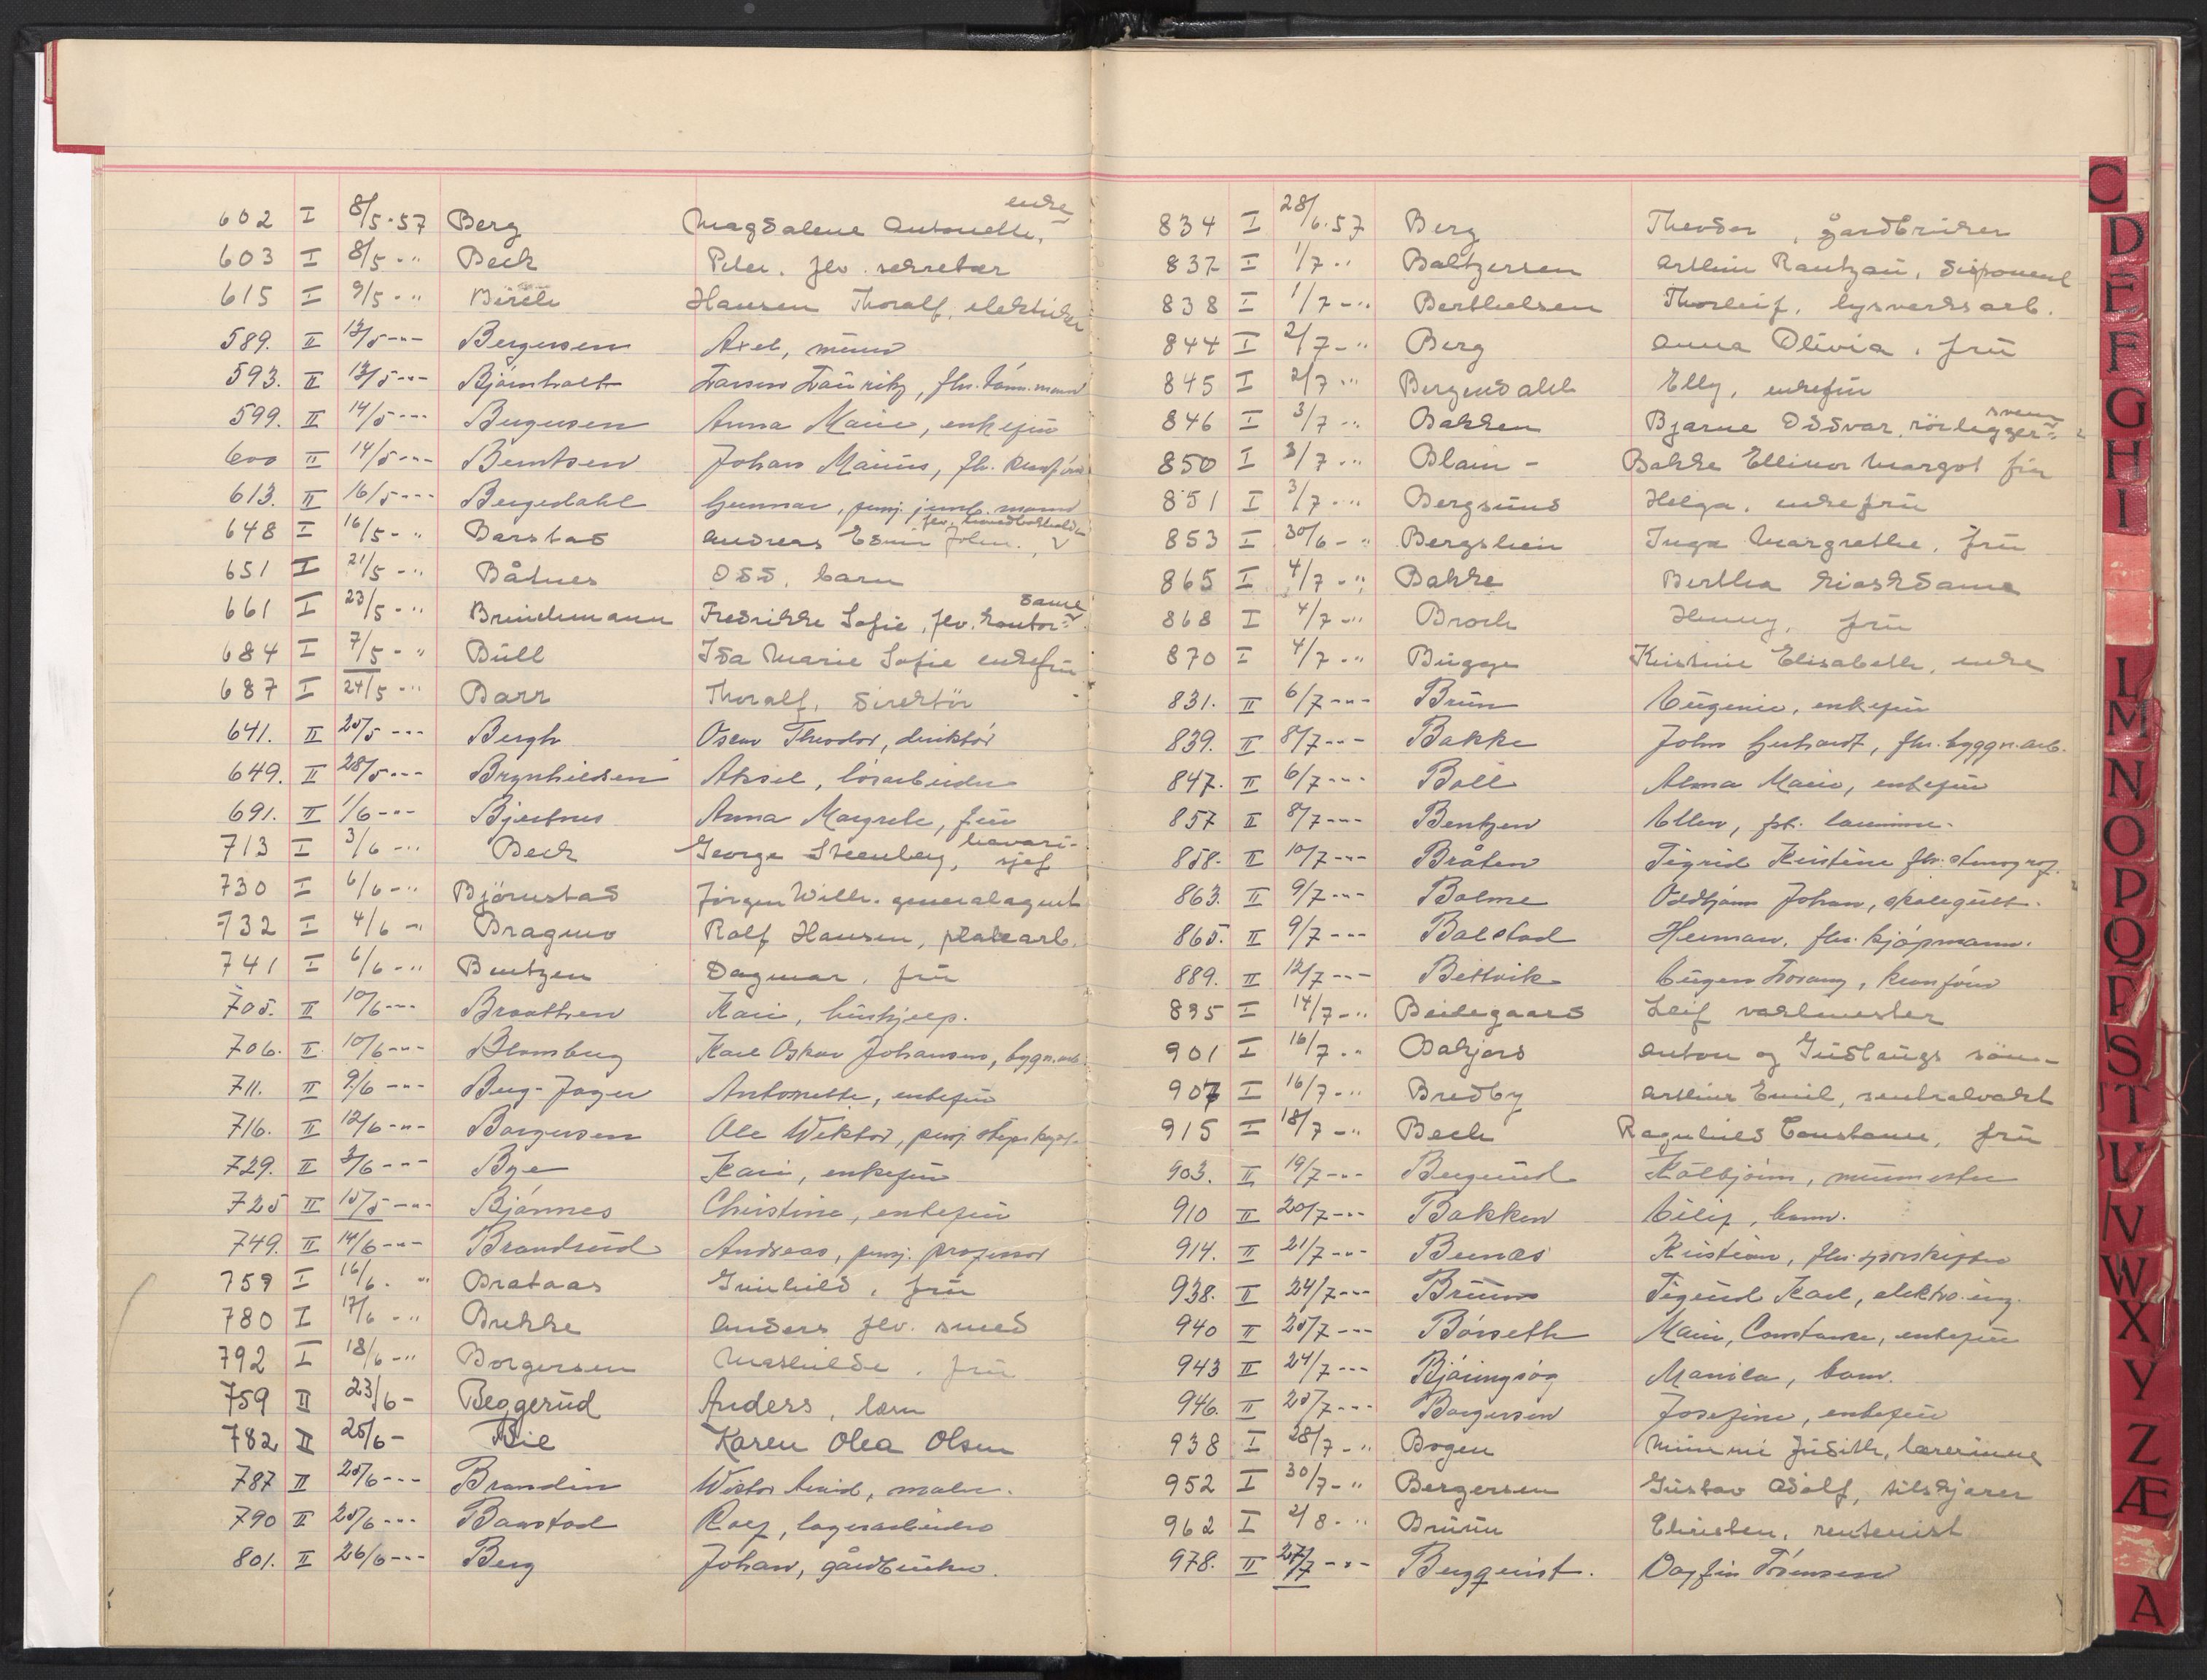 602 I 8/5-57 Berg Magdalene Antonette, enke
603 I 8/5-" Beck Peter. flv. sekretær
615 I 9/5-" Hansen Thoralf, elektriker
589. II 13/5-"- Bergersen Axel, murer
593. II 13/5-"- Bjørnholt Larsen Lauritz,
599. II 14/5-"- Bergersen Anna Marie, enkefru
600 II 14/5-"- Berntsen Johan Marius, fhv.
613. II 16/5-"- Bergedahl Gunnar, pensj. jernb. mand
648 I 16/5-" Barstad Andreas Edvin Johan. flv. hovedbokholder
651 I 21/5-" Båtnes Odd, barn
661 I 23/5-" Brinchmann Fredrikke Sofie, flv. kontordame
684 I 7/5-" Bull Ida Marie Sofie enkefru
687 I 24/5-" Barr Thoralf, direktør
641. II 25/5-"- Bergh Oscar Theodor, direktør
649. II 28/5-"- Brynhildsen Aksel, løsarbeider
691. II 1/6-"- Bjertnes Anna Margrete, fru
713 I 3/6-" Beck George Steenberg, havarisjef
730 I 6/6-" Bjørnstad Jørgen Wilh. generalagent
732 I 4/6-" Bragmo Rolf Hansen, platearb.
741 I 6/6-" Bentzen Dagmar, fru
705. II 10/6-"- Braathen Kari, hushjelp.
706. II 10/6-"- Blomberg Karl Oskar Johansen, bygn.arb.
711. II 9/6-"- Berg-Jager Antonette, enkefru
716. II 12/6-"- Borgersen Ole Wiktor, pensj.
729. II 3/6-"- Bye Kari, enkefru
725 II 15/5-"- Bjønnes Christine, enkefru
749. II 14/6-"- Brandrud Andreas, pensj. professor
759 I 16/6-" Brataas Gunhild, fru
780 I 17/6-" Brekke Anders flv. smed
792 I 18/6-" Borgersen Mathilde, fru
759 II 23/6- Beggerud Anders, barn
782 II 25/6- Bie Karen Olea Olsen
787 II 25/6-"- Brandin Wictor maler.
790 II 25/6-"- Baastad Rolf, lagerarbeider
801. II 26/6-"- Berg Johan, gårdbruker.
834 I 28/6-57 Berg Theodor, gårdbruker
837 I 1/7-" Baltzersen Arthur Rantzau, disponent
838 I 1/7-" Berthelsen Thorleif, lysverksarb.
844 I 2/7-" Berg Anna Olivia, fru
845 I 2/7-" Bergendahl Elly, enkefru
846 I 3/7-" Bakken Bjarne Oddvar, rørleggersvenn
850 I 3/7-" Blain- Bakke Ellinor Margot fru
851 I 3/7-" Bergsund Helga, enkefru
853 I 30/6-" Bergslien Inga Margrethe, fru
865 I 4/7-" Bakke Bertha kioskdame
868 I 4/7-" Broch Henny, fru
870 I 4/7-" Bugge Kristine Elisabeth, enke
831. II 6/7-"- Brun Eugenie, enkefru
839. II 8/7-"- Bakke John Gerhardt, fhv. byggn.arb.
847. II 6/7-"- Boll Alma Marie, enkefru
857 II 8/7-"- Bentzen Ellen,
858. II 10/7-"- Bråten Sigrid Kristine fhv. stenograf.
863. II 9/7-"- Bolme Oddbjørn Johan, skolegutt.
865. II 9/7-"- Bolstad Herman, fhv. kjøpmann.
889. II 12/7-"- Betttvik Eugen
895 I 14/7-" Beitegaard Leif vaktmester
901 I 16/7-" Bakjord Anton og Gudlaugs sønn
907 I 16/7-" Bredby Arthur Emil, sentralvakt
915 I 18/7-" Bech Ragnhild Constance, fru
903. II 19/7-"- Bergerud Kolbjørn, murmester
910 II 20/7-"- Bakken Eilif, barn.
914. II 21/7-"- Beenæs Kristian, fhv. sporskifter
938. II 24/7-"- Bruun Sigurd Karl, elektro.ing.
940 II 25/7-"- Børseth Marie, Constance, enkefru
943 II 24/7-"- Manila, barn.
946. II 25/7-"- Borgersen Josefine, enkefru
938 I 28/7-" Bogen Mimmi Judith, lærerinne
952 I 30/7-" Bergersen Gustav Adolf, stilskjærer
962 I 2/8-" Bruun Christen, rentenist
978. II 27/7-"- Bergquist. Dagfin Sørensen
C
D
E
F
G
H
I
L
M
N
O
P
Q
R
S
T
U
V
W
X
Y
Z
Æ
A